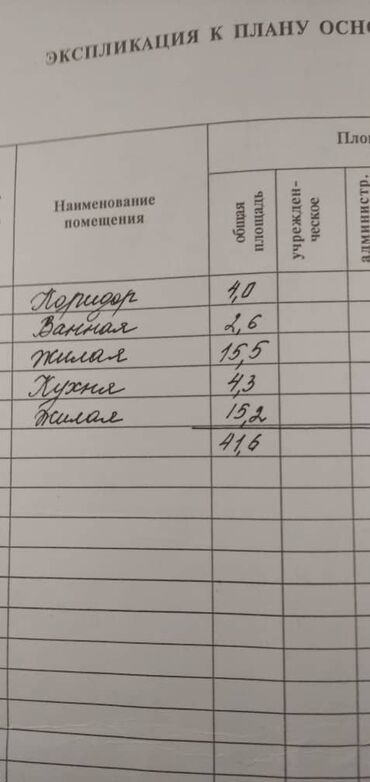 ЭКСПЛИКАЦИЯ К ПЛАНУ ОСНО
Площ
Наименование
помещения
общая
площадь
учрежден-
ческое
администр.
Коридор 4,0
Ванная 2,6
Жилая 15,5
Кухня 4,3
Жилая 15,2
41,6